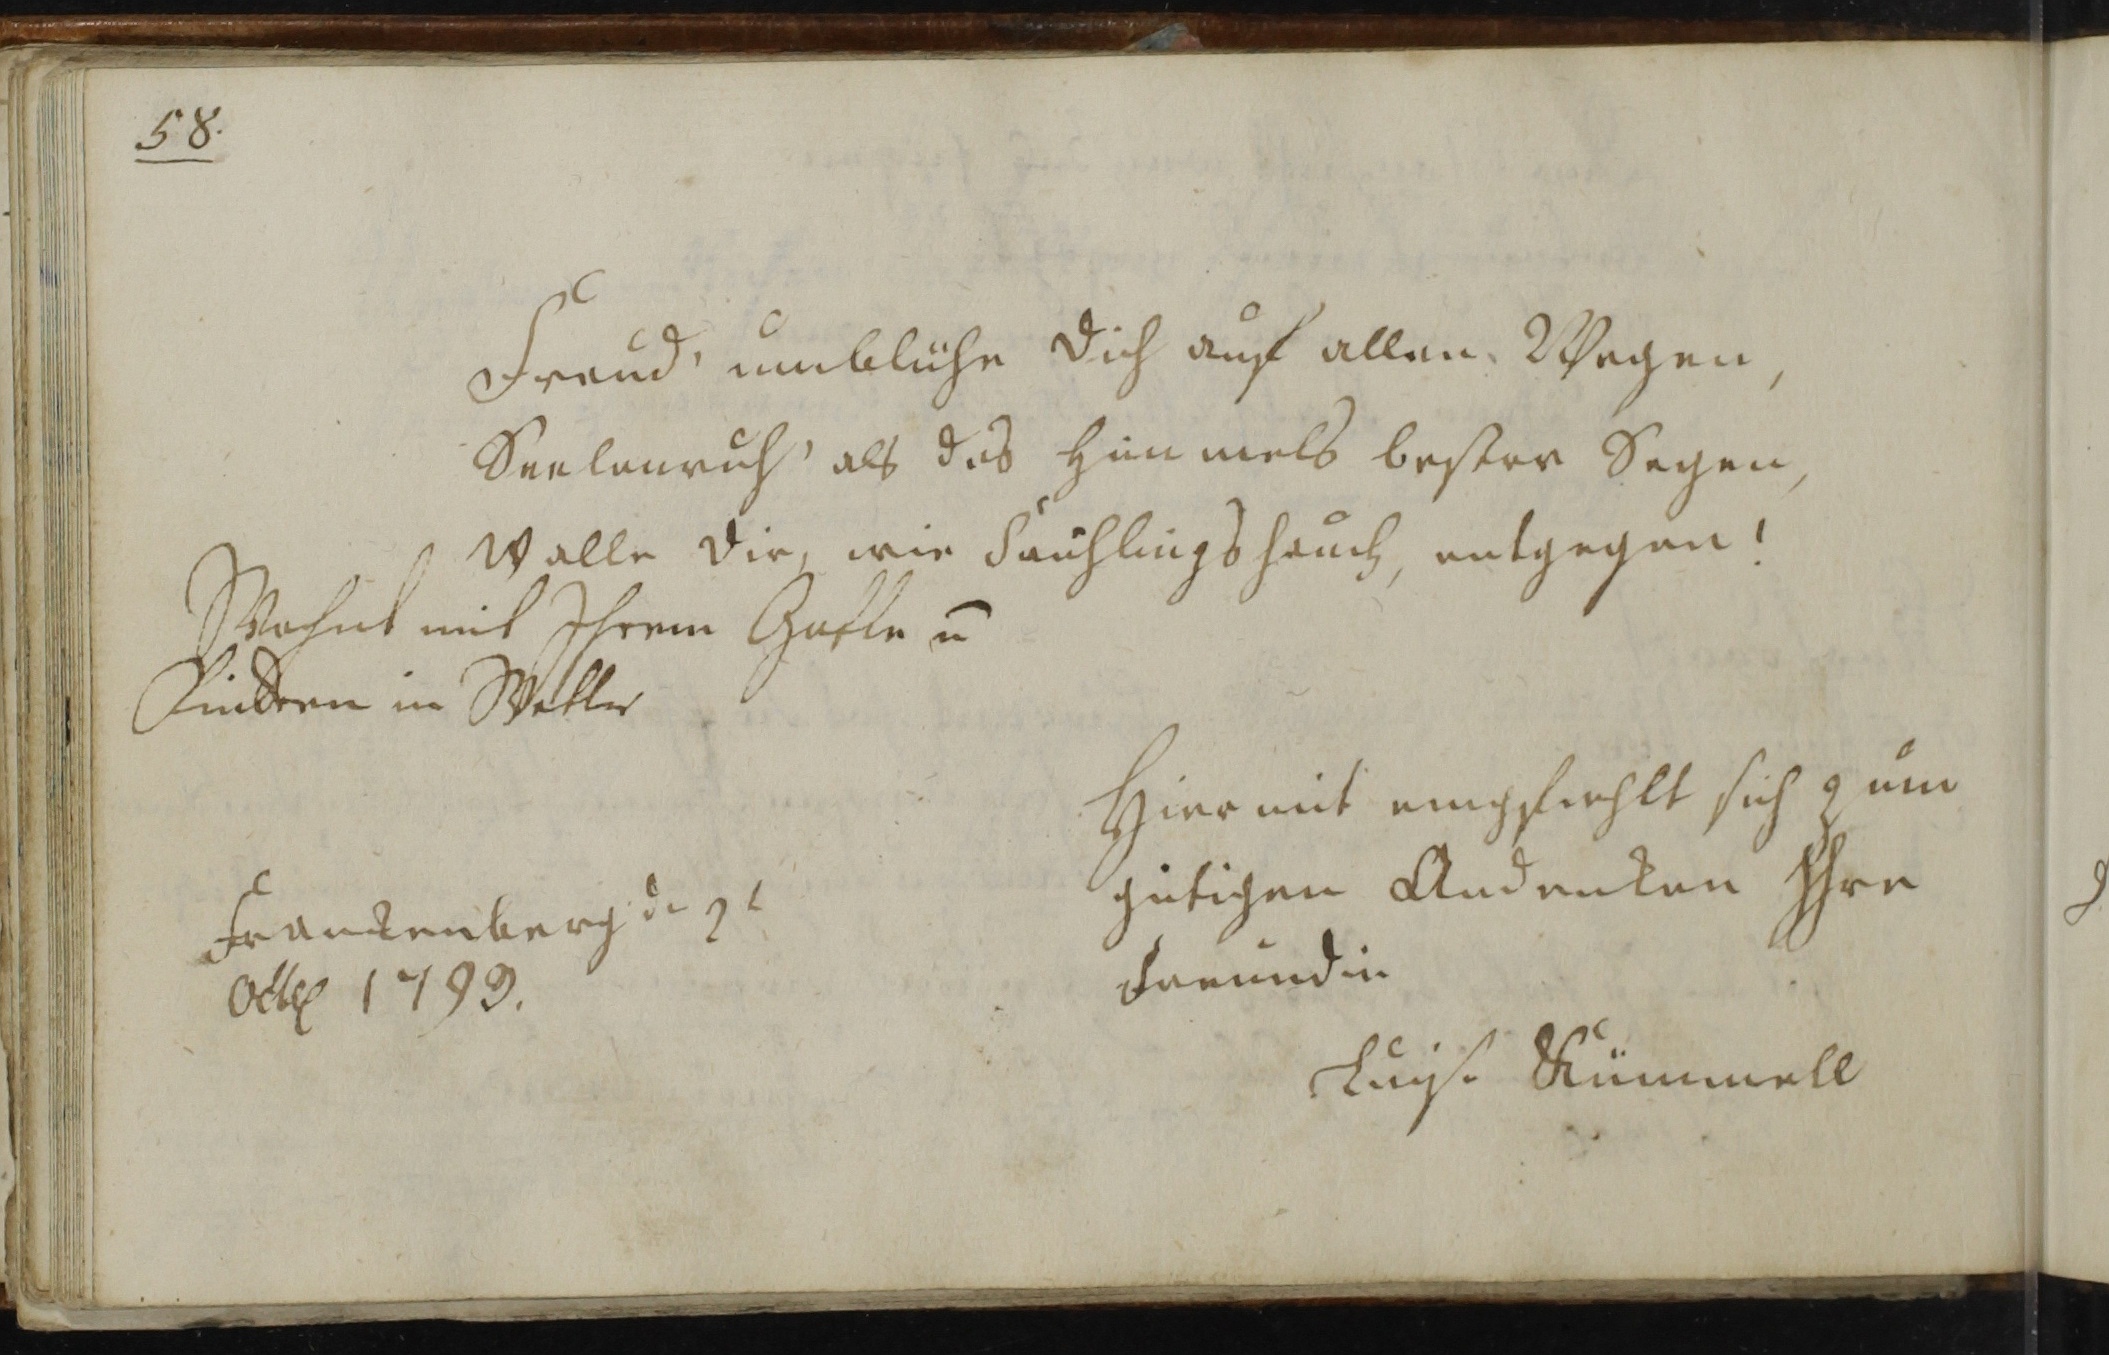 58.
Freud' umblühe Dich auf allen Wegen,
Seelenruh' als des Himmels bester Segen,
Walle Dir, wie Frühlingshauch, entgegen!
Wohnt mit Ihrem Gatte u
Kindern in Wetter
Hiermit empfiehlt sich zum
gütigen Andenken Ihre
Freundin
Frankenberg d. 2t
Octbr 1799.
Luise Kümmell